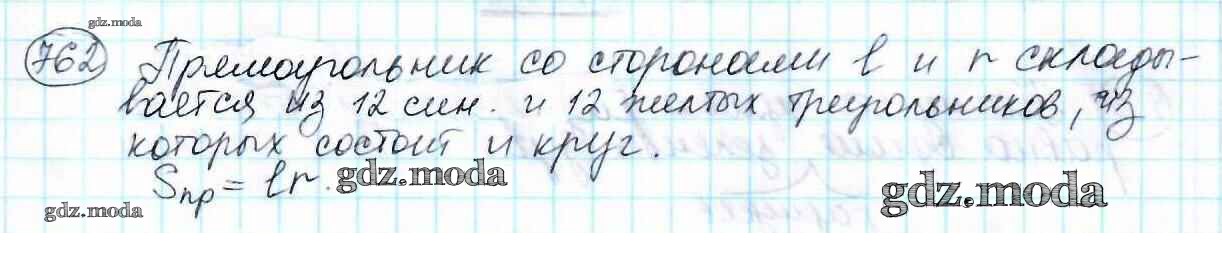 gdz.moda
762 Прямоугольник со сторонами l и r складывается
вается из 12 син. и 12 желтых треугольников, из
которых состоит и круг.
Sпр = lr. gdz.moda
gdz.moda
gdz.moda